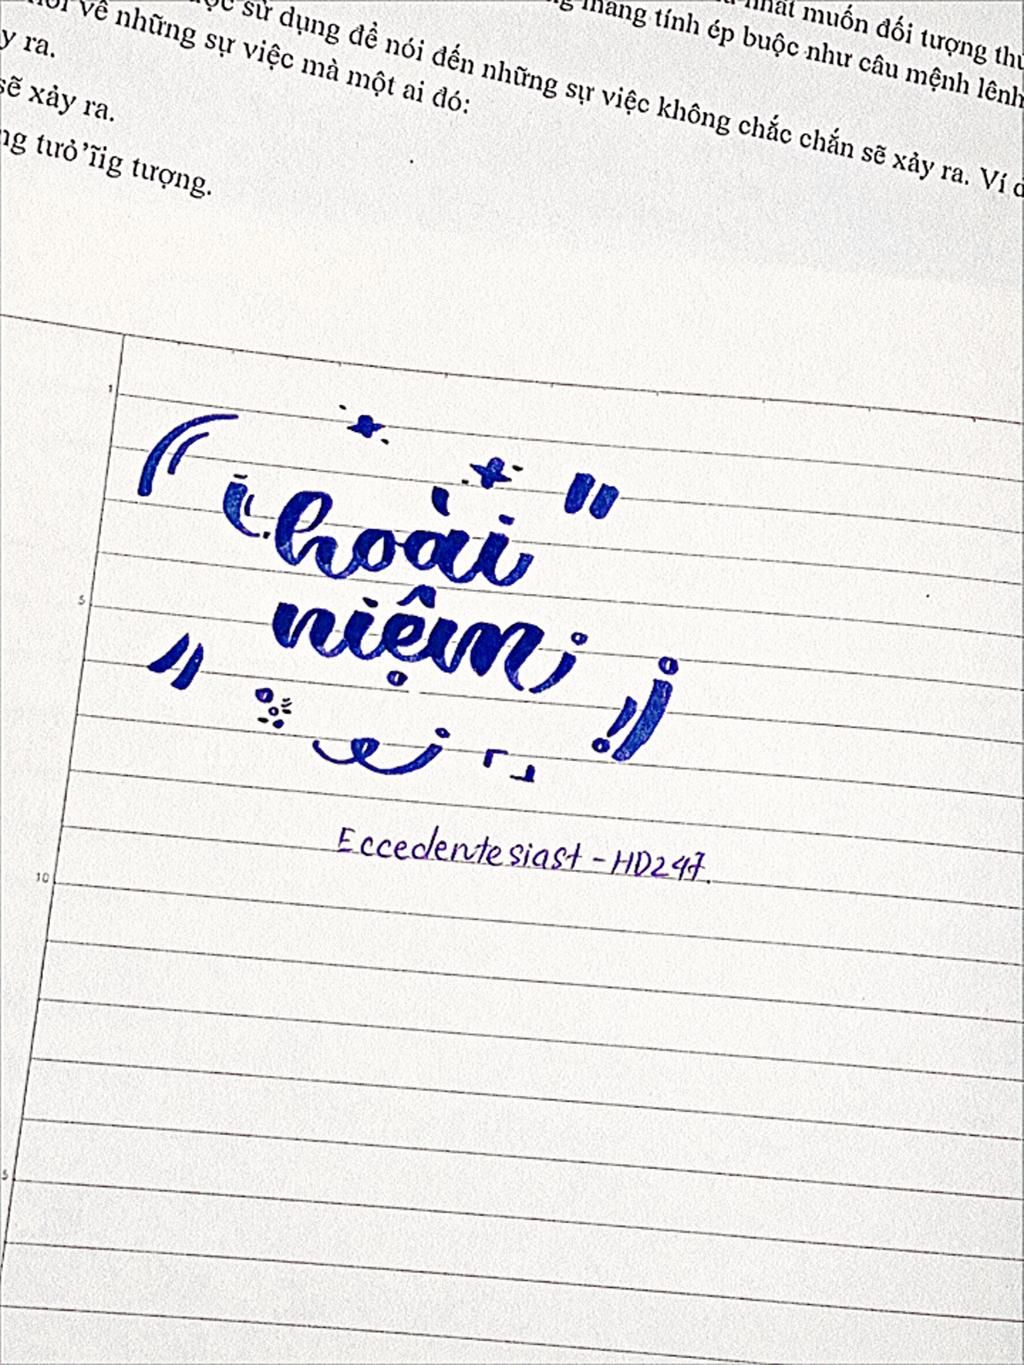 nhất muốn đối tượng
mang tính ép buộc như câu mệnh lệnh
sử dụng để nói đến những sự việc không chắc chắn sẽ xảy ra. Ví
về những sự việc mà một ai đó:
y ra.
sẽ xảy ra.
ng tưỏ’ĩig tượng.
1
hoài
niệm
5
Eccedentesiast - HD247.
10
5